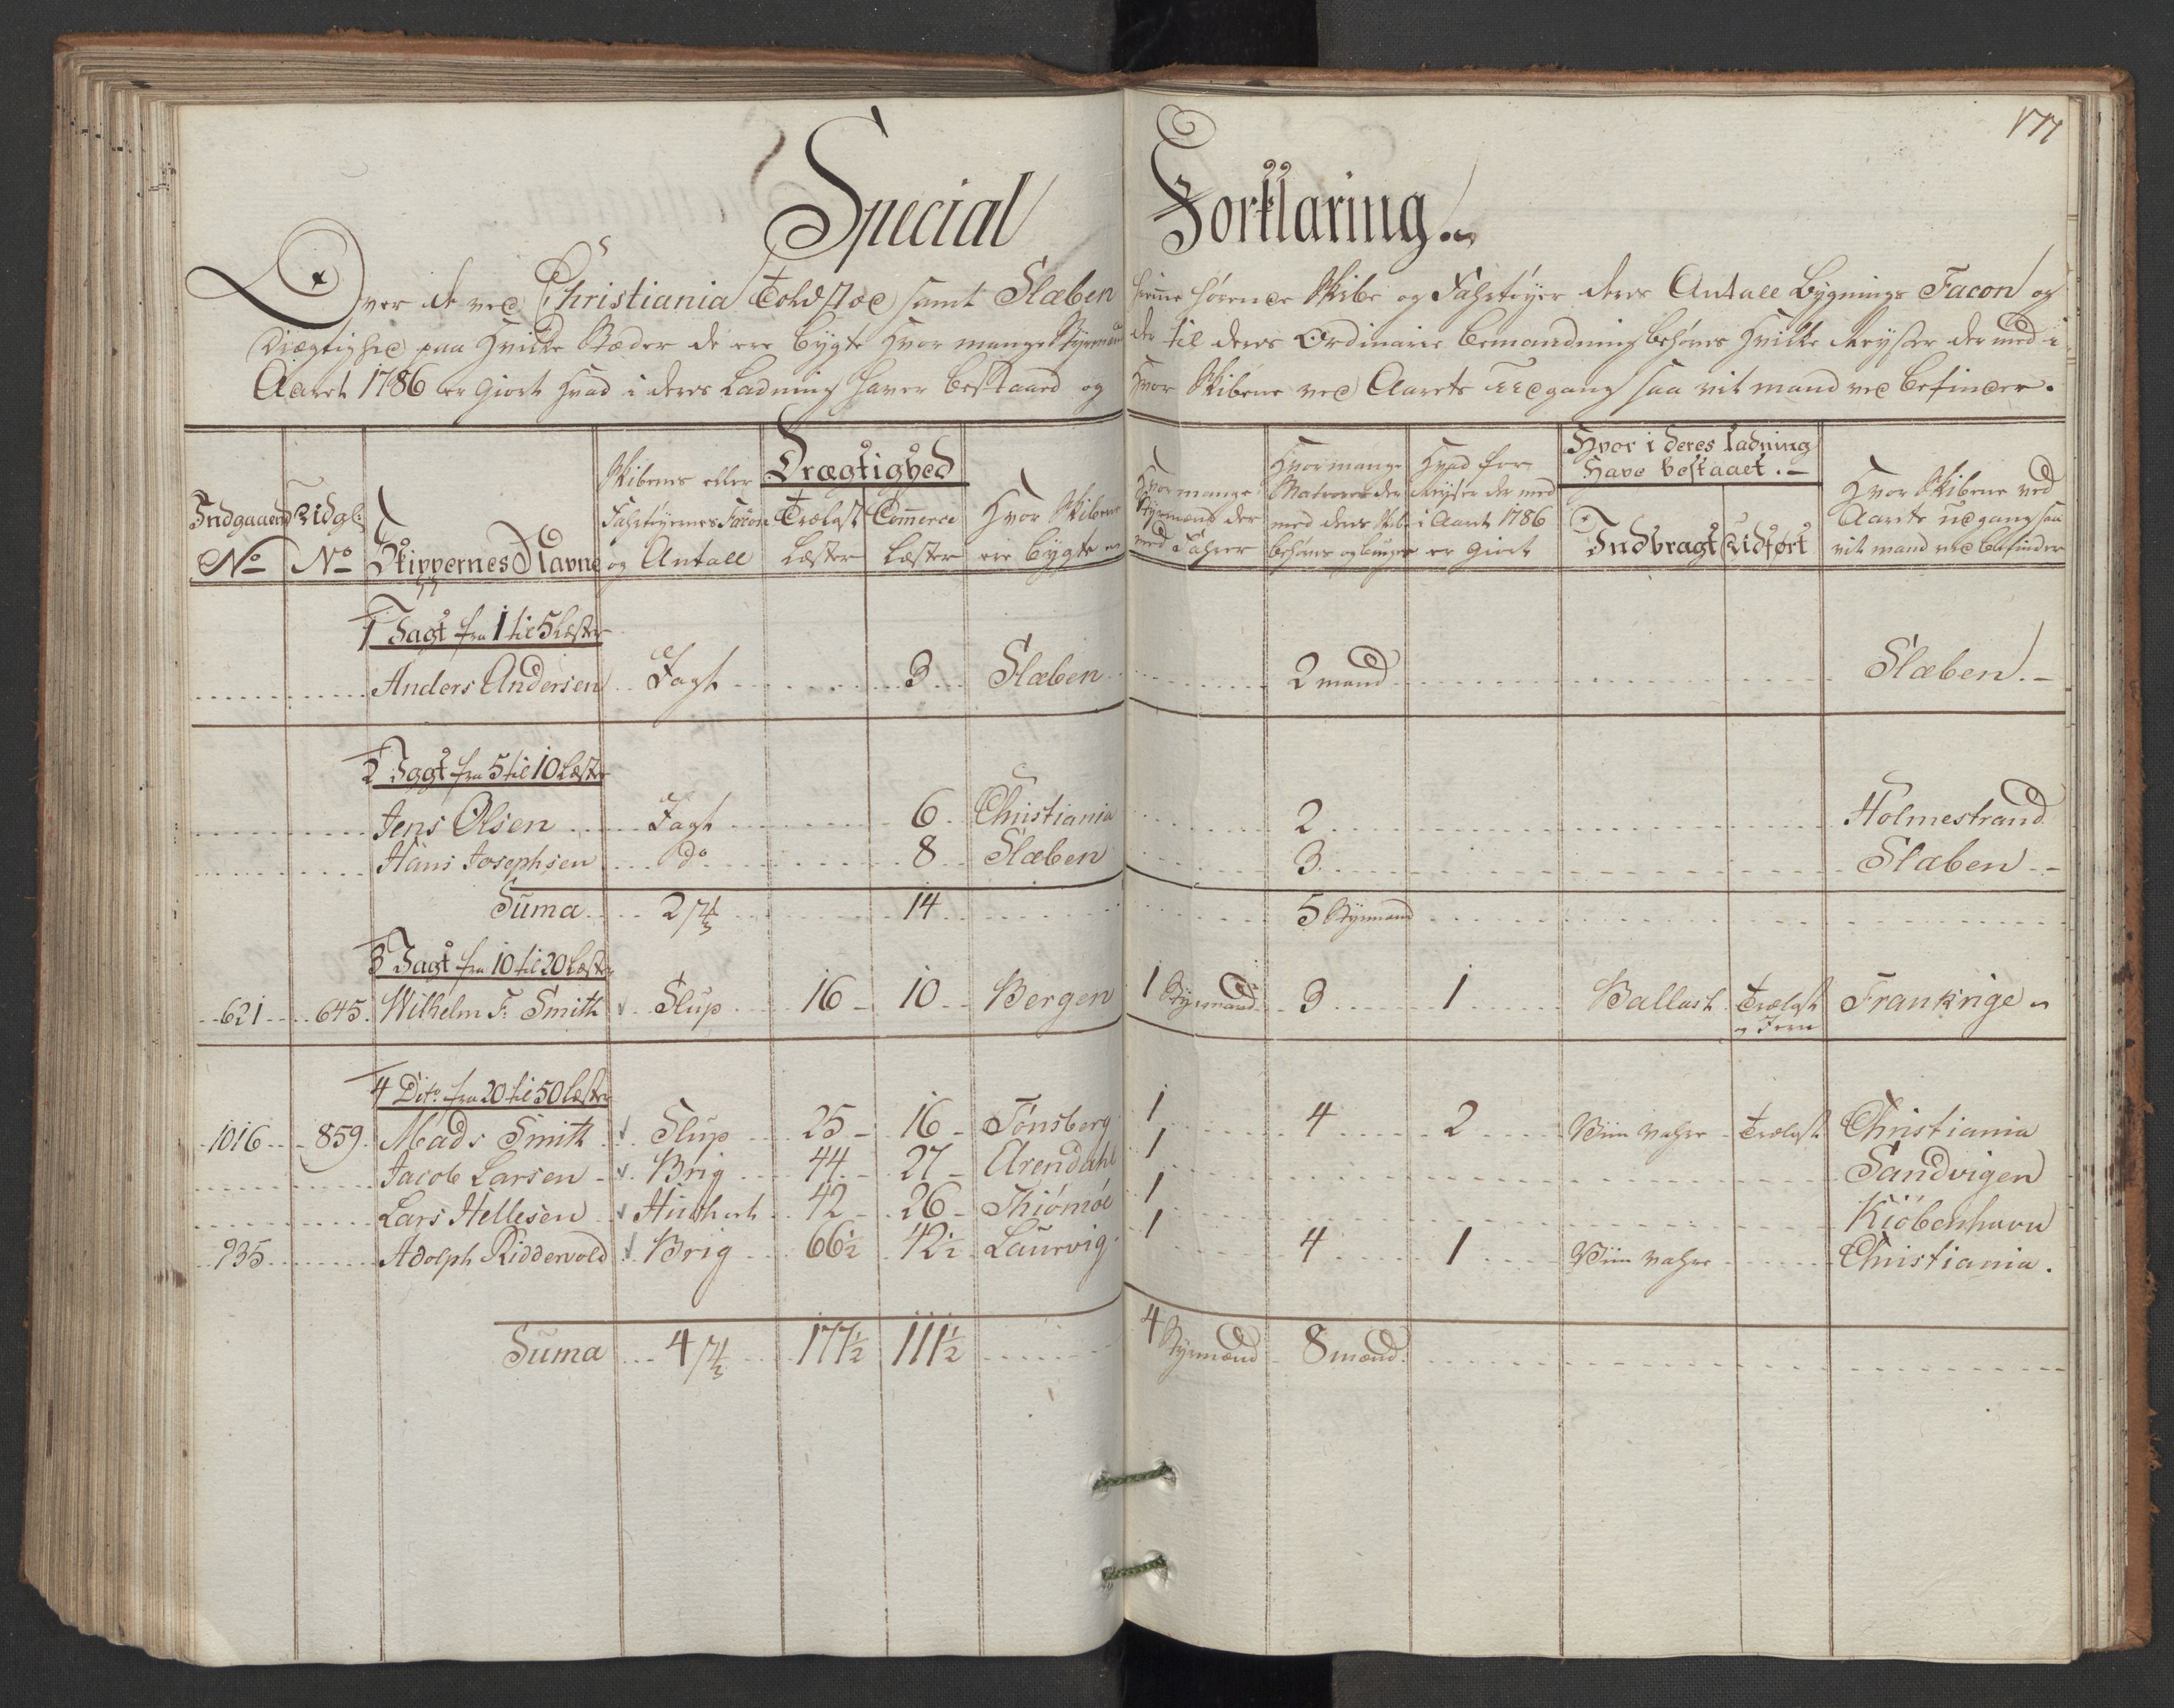 177
Special Forklaring
Over de ved Christiania Toldstæd samt Slæben henne hørende Skibe og Fahrtøyer deres Antall Bygnings Facon og
Drægtighed paa Hvilke Stæder de ere bygte Hvor mange Styrmænd der til deres Ordinarie bemandning behøves Hvilke Reyser der med i
Aaret 1786 er giort hvad i deres Ladning haver bestaaed og Hvor Skibene ved Aarets Udgang saa vit mand ved befinder.
Indgaaend No
Udgl: No
Skippernes Navne
Skibenes eller Fahrtøyernes Facon og Antall
Drægtighed
Trælast Læster
Commerce Læster
Hvor Skibene ere bygte
Hvor mange Styrmænd der med Fahrer
Hvor mange Matroser der med deres Skibe behøves og bruges
Hvad for Reyser der med i Aaret 1786 er giort
Hvor i deres Ladning Have bestaaet.
Indbragt
Udført
Hvor Skibene ved Aarets udgang saa vit mand ved befinder
1 Jagt fra 1 til 5 Læster
Anders Andersen Jagt 3 Slæben 2 mand Slæben
2 Jagt fra 5 til 10 Læster
Jens Olsen Jagt 6 Christiania 2 Holmestrand
Hans Josephsen do 8 Slæben 3 Slæben
Suma 2 14 5 Styrmand
3 Jagt fra 10 til 20 Læster
621 645 Wilhelm F. Smith Slup 16 10 Bergen 1 Styrmand 3 1 Ballast Trælast og Jern Frankrige
4 Dito fra 20 til 50 Læster
1016 859 Mads Smith Slup 25 16 Tønsberg 1 4 2 Viin Vahre Trælast Christiania
Jacob Larsen Brig 44 27 Arendahl 1 Sandvigen
Lars Hellesen Huckert 42 26 Thiømøe 1 Kiöbenhavn
935 Adolph Riddervold Brig 66½ 42½ Laurvig 1 4 1 Viin Vahre Christiania.
Suma 4 177½ 111½ 4 Styrmænd 8 mænd